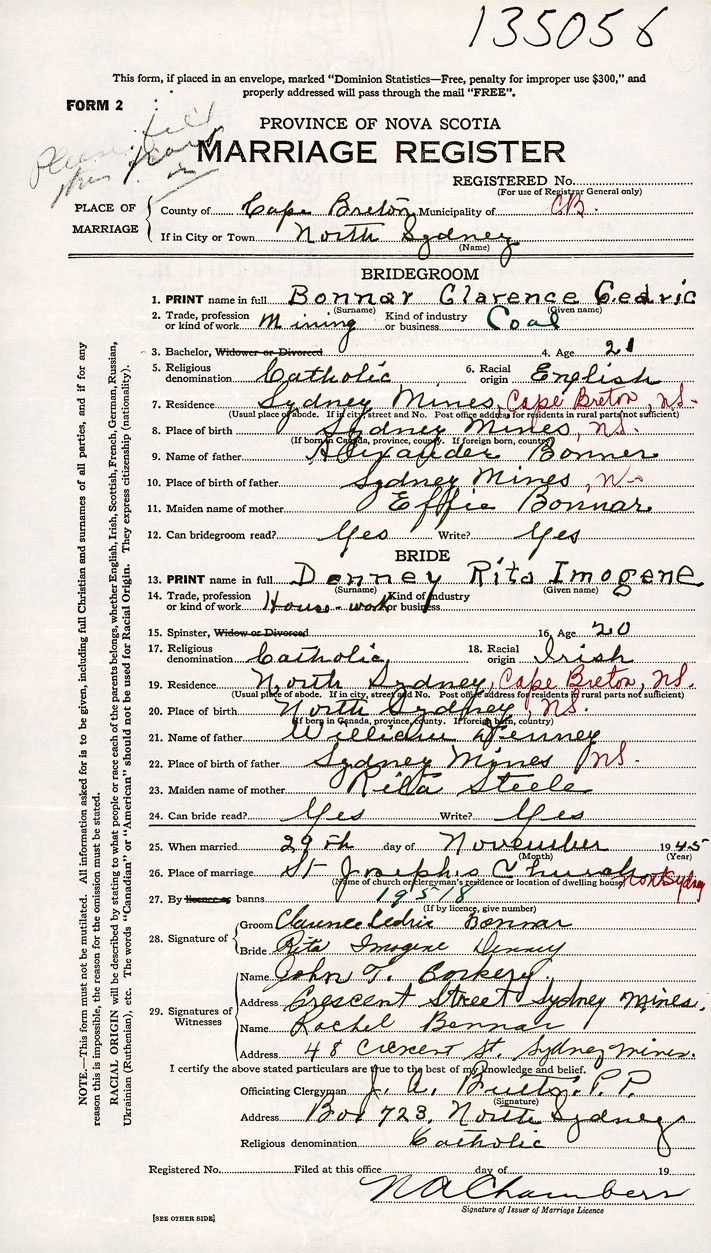 135056
This form, if placed in an envelope, marked "Dominion Statistics—Free, penalty for improper use $300," and
properly addressed will pass through the mail "FREE".
FORM 2
Please
this
PROVINCE OF NOVA SCOTIA
MARRIAGE REGISTER
REGISTERED No.
(For use of Registrar General only)
PLACE OF MARRIAGE
County of Cape Breton Municipality of C.B.
If in City or Town North Sydney
(Name)
BRIDEGROOM
1. PRINT name in full Bonnar Clarence Cedric
(Surname) (Given name)
2. Trade, profession or kind of work Mining Kind of industry or business Coal
3. Bachelor, Widower or Divorced 4. Age 21
5. Religious denomination Catholic 6. Racial origin English
7. Residence Sydney Mines, Cape Breton, N.S.
(Usual place of abode. If in city, street and No. Post office address for residents in rural parts not sufficient)
8. Place of birth Sydney Mines, N.S.
(If born in Canada, province, county. If foreign born, country)
9. Name of father Alexander Bonner
10. Place of birth of father Sydney Mines, N.S.
11. Maiden name of mother Effie Bonnar
12. Can bridegroom read? Yes Write? Yes
BRIDE
13. PRINT name in full Denney Rita Imogene
(Surname) (Given name)
14. Trade, profession or kind of work House-work Kind of industry or business
15. Spinster, Widow or Divorced 16. Age 20
17. Religious denomination Catholic 18. Racial origin Irish
19. Residence North Sydney, Cape Breton, N.S.
(Usual place of abode. If in city, street and No. Post office address for residents in rural parts not sufficient)
20. Place of birth North Sydney, N.S.
(If born in Canada, province, county. If foreign born, country)
21. Name of father William Denney
22. Place of birth of father Sydney Mines N.S.
23. Maiden name of mother Rita Steele
24. Can bride read? Yes Write? Yes
25. When married 29th day of November 1945
(Month) (Year)
26. Place of marriage St Joseph's Church North Sydney
(Name of church or clergyman's residence or location of dwelling house)
27. By licence or banns 19518
(If by licence, give number)
28. Signature of
Groom Clarence Cedric Bonnar
Bride Rita Imogene Denney
29. Signatures of Witnesses
Name John T. Corkery
Address Crescent Street Sydney Mines.
Name Rachel Bonnar
Address 48 Crescent St. Sydney Mines.
I certify the above stated particulars are true to the best of my knowledge and belief.
Officiating Clergyman J. A. P.P.
(Signature)
Address Box 723, North Sydney
Religious denomination Catholic
Registered No. Filed at this office day of 19
N A Chambers
Signature of Issuer of Marriage Licence
[SEE OTHER SIDE]
NOTE.—This form must not be mutilated. All information asked for is to be given, including full Christian and surnames of all parties, and if for any
reason this is impossible, the reason for the omission must be stated.
RACIAL ORIGIN will be described by stating to what people or race each of the parents belongs, whether English, Irish, Scottish, French, German, Russian,
Ukrainian (Ruthenian), etc. The words "Canadian" or "American" should not be used for Racial Origin. They express citizenship (nationality).